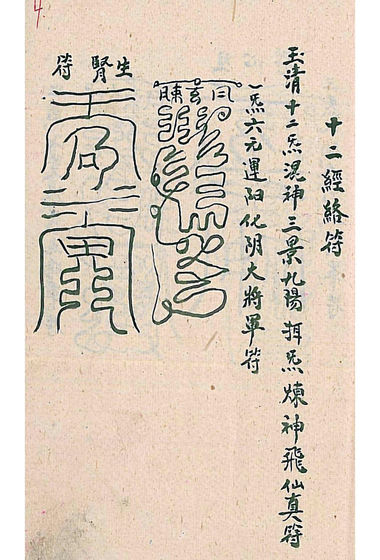 十二經絡符
玉清十二炁混神三景九陽炁煉神飛仙真符
一炁六元運阳化阴大將軍符
生腎符
4